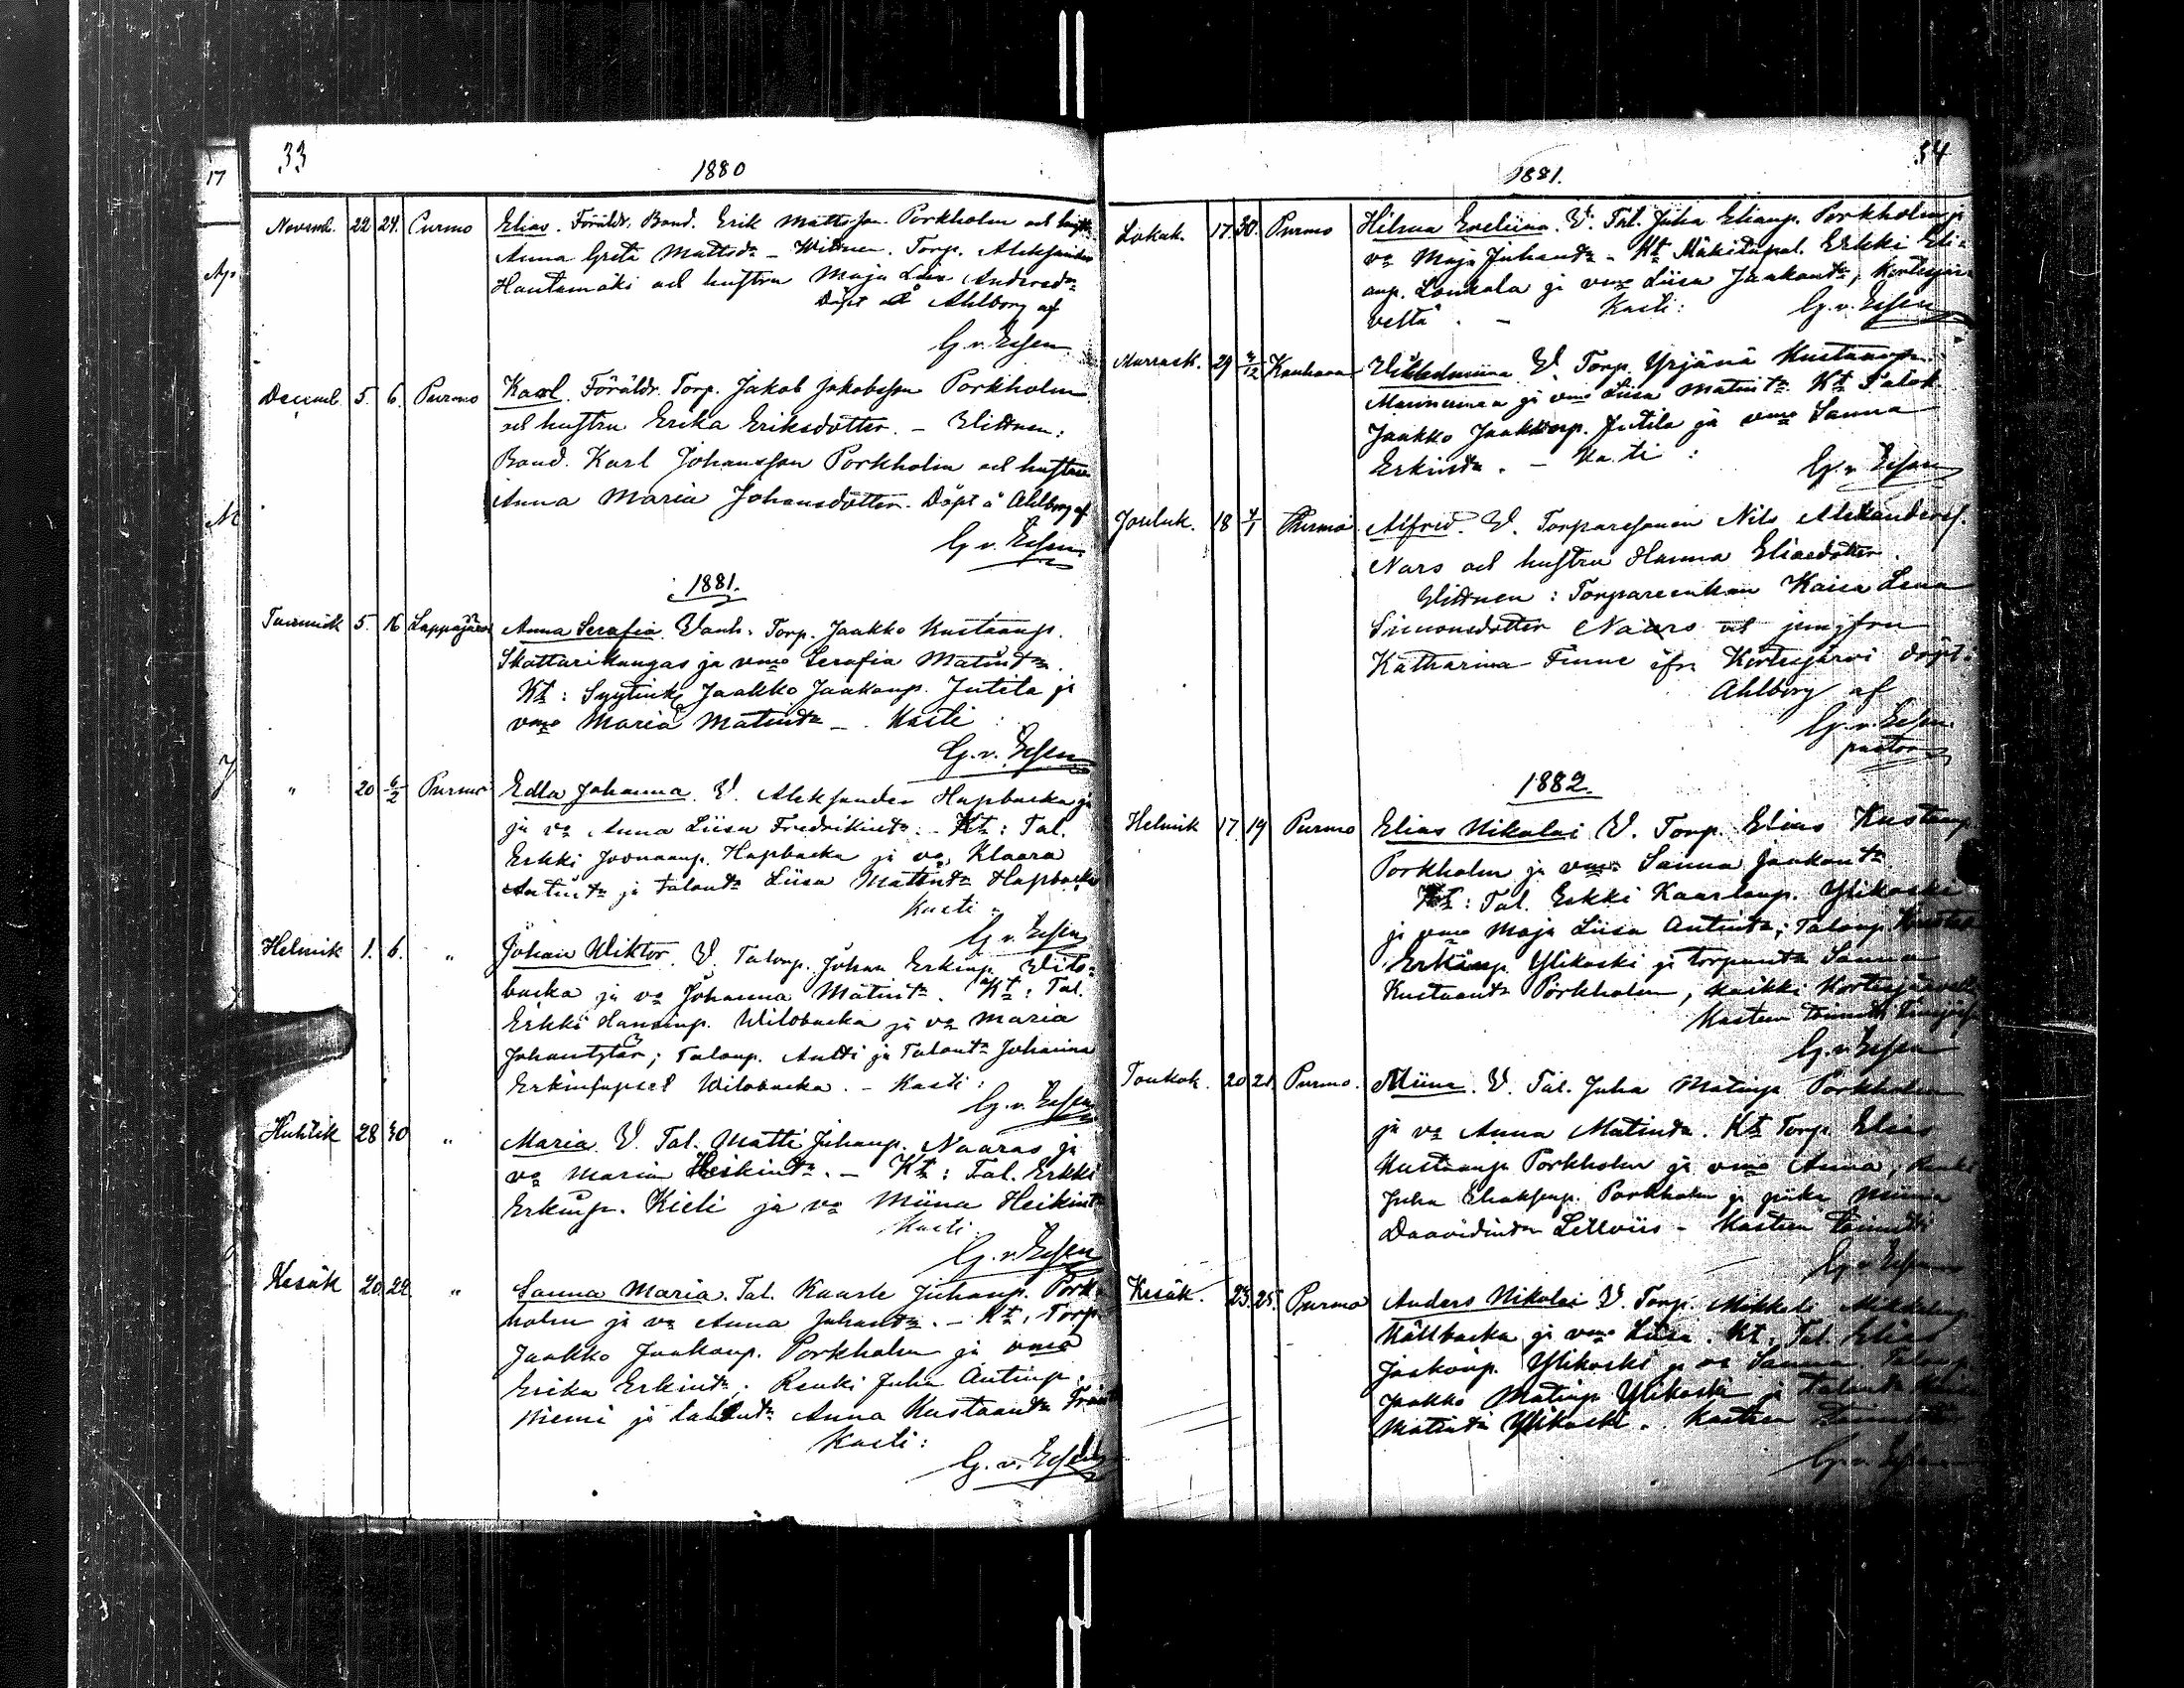 33
1880
Novemb. 22 24. Purmo Elias. Föräldr. Bond. Erik Mattsson Porkholm och hustr.
Anna Greta Mattsdr – Wittnen. Torp. Aleksander
Hautamäki och hustru Maja Lisa Andersdr
Döpt å Ahlborg af
G. v. Essen
Decemb. 5. 6. Purmo Karl. Föräldr. Torp. Jakob Jakobsson Porkholm
och hustru Erika Eriksdotter. – Wittnen:
Bond. Karl Johansson Porkholm och hustru
Anna Maria Johansdotter. Döpt å Ahlborg af
G. v. Essen.
1881.
Tammik 5. 16 Lappajärvi Anna Serafia. Vanh. Torp. Jaakko Kustaanp.
Skattarikangas ja vmo Serafia Matintr.
Kt: Syytink. Jaakko Jaakonp. Jutila ja
vmo Maria Matintr – Kasti:
G. v. Essen
" 20 6/2 Purmo Edla Johanna. V. Aleksander Hapbacka ja
ja va Anna Liisa Fredrikintr. – Kt: Tal.
Erkki Joonaanp. Hapbacka ja va Klaara
Antintr ja talontr Liisa Matintr Hapbacka
Kasti:
G. v. Essen
Helmik 1. 6. " Johan Wiktor. V. Talonp. Johan Erkinp. Wilo=
backa ja va Johanna Matintr. Kt: Tal.
Erkki Hansinp. Wilobacka ja va Maria
Johantytär; Talonp. Antti ja Talontr Johanna
Erkinlapset Wilobacka. – Kasti:
G. v. Essen
Huhtik 28 30 " Maria. V. Tal. Matti Juhanp. Naaras ja
va Maria Heikintr. – Kt: Tal. Erkki
Erkinp. Kieli ja va Miina Heikintr
Kasti
G. v. Essen
Kesäk 20. 22 " Sanna Maria. Tal. Kaarle Juhanp. Pork=
holm ja va Anna Juhantr. – Kt: Torp.
Jaakko Jaakonp. Porkholm ja vmo
Erika Erkintr; Renki Juha Antinp.
Niemi ja talontr Anna Kustaantr
Kasti:
G. v. Essen
34
1881.
Lokak. 17. 30. Purmo Hilma Eveliina. V. Tal. Juha Elianp. Porkholm ja
va Maja Juhantr – Kt. Mäkitupal. Erkki Eli=
anp. Loukola ja vmo Liisa Jaakontr, Kortesjär=
vestä. – Kasti: G. v. Essen
Marrask. 29 4/12 Kauhava Wilhelmiina V. Torp. Yrjänä Kustaanp.
ja vmo Liisa Matintr. Kt
Jaakko Jaakkonp. Jutila ja vmo Sanna
Erkintr. – Kasti: G. v. Essen
Jouluk. 18 1/1 Purmo Alfred. V. Torparesonen Nils Aleksanders.
Nars och hustru Hanna Eliasdotter.
Wittnen: Torpareenkan Kaisa Lena
Simonsdotter Naars och jungfrun
Katharina Finne ifrn Kortesjärvi döpt:
Ahlborg af
G. v. Essen.
pastor
1882.
Helmik 17. 19 Purmo Elias Nikolai V. Torp. Elias Kustanp
Porkholm ja vmo Sanna Jaakontr.
Kt: Tal. Erkki Kaarlonp. Ylikoski
ja vmo Maja Liisa Antintr; Talonp.
Erkinp. Ylikoski ja torpantr Sanna
Kustaantr Porkholm, kaikki Kortesjärvellä
Kasteen toimitti
G. v. Essen
Toukok. 20 21 Purmo. Miina. V. Tal. Juha Matinp Porkholm
ja va Anna Matintr. Kt Torp. Elias
Kustaanp Porkholm ja vmo Anna; Renki
Juha Eliaksenp. Porkholm ja piika Miina
Daavidintr Lillviis – Kasteen toimitti
G. v. Essen
Kesäk. 23. 25. Purmo Anders Nikolai V. Torp. Mikkeli Mikkelinp.
Källbacka ja vmo Liisa. Kt. Tal. Elias
Jaakonp. Ylikoski ja va Sanna. Talonp.
Jaakko Matinp Ylikoski ja talontr
Matintr Ylikoski. Kasteen toimitti
G. v. Essen